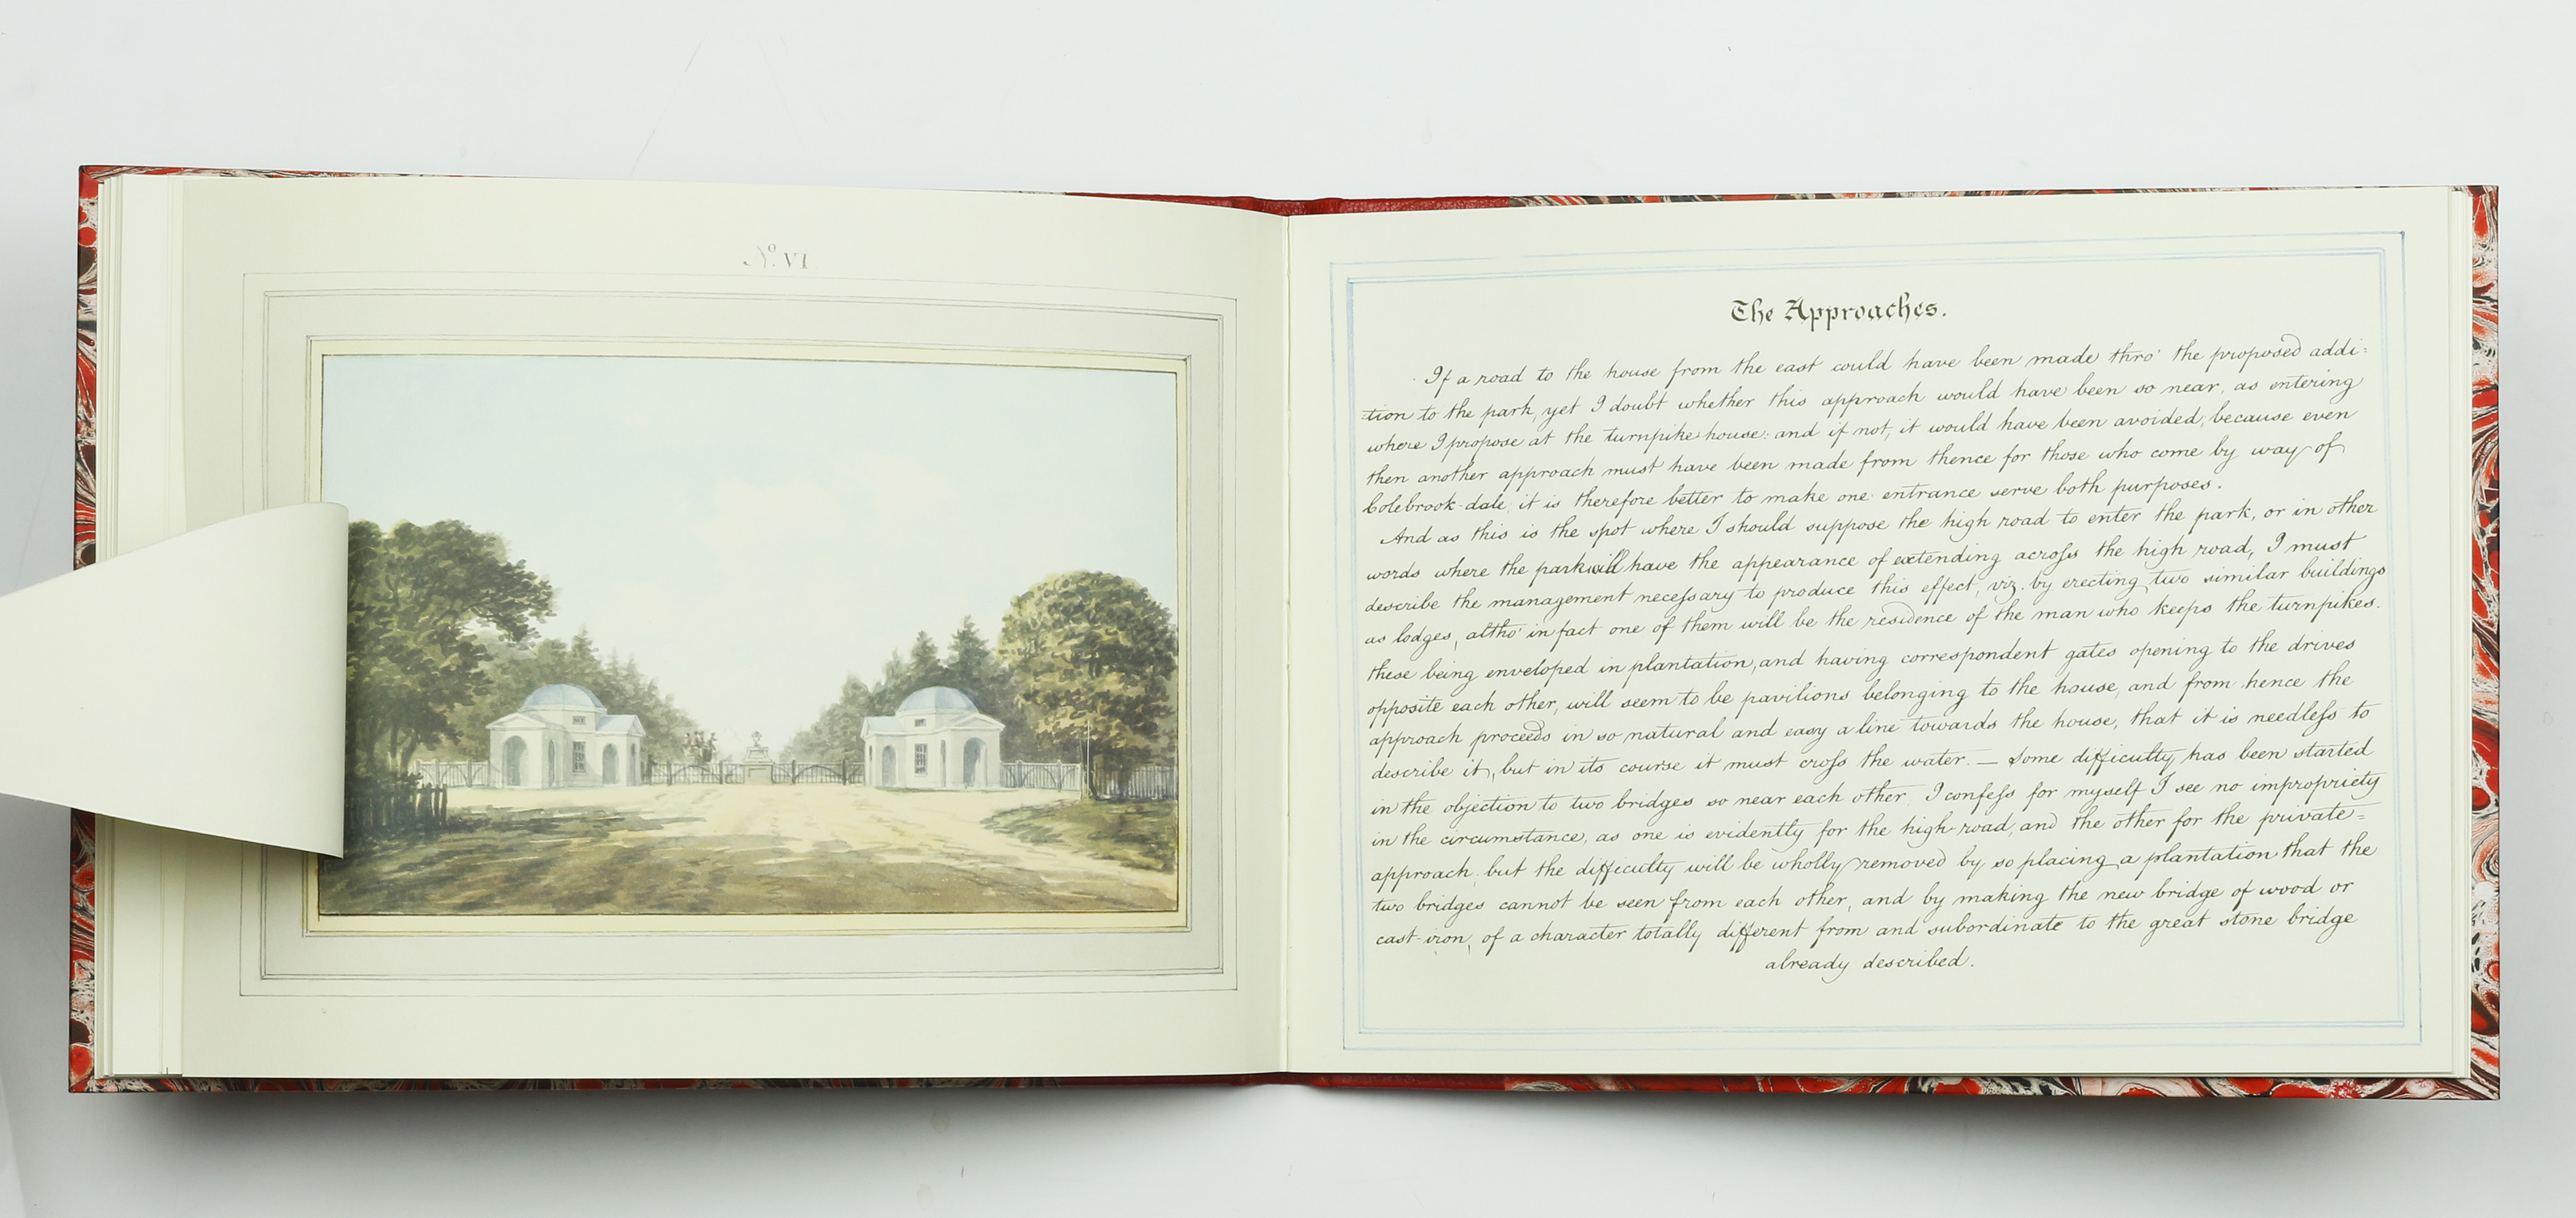 Nº. VI
The Approaches.
If a road to the house from the east could have been made thro' the proposed addi:
=tion to the park, yet I doubt whether this approach would have been so near, as entering
where I propose at the turnpike house: and if not, it would have been avoided, because even
then another approach must have been made from thence for those who come by way of
Colebrook-dale, it is therefore better to make one entrance serve both purposes.
And as this is the spot where I should suppose the high road to enter the park, or in other
words where the park will have the appearance of extending acroſs the high road, I must
describe the management neceſsary to produce this effect, viz. by erecting two similar buildings
as lodges, altho' in fact one of them will be the residence of the man who keeps the turnpikes.
these being enveloped in plantation, and having correspondent gates opening to the drives
opposite each other, will seem to be pavilions belonging to the house, and from hence the
approach proceeds in so natural and easy a line towards the house, that it is needleſs to
describe it, but in its course it must croſs the water. — Some difficulty has been started
in the objection to two bridges so near each other. I confeſs for myself I see no impropriety
in the circumstance, as one is evidently for the high-road, and the other for the private=
approach; but the difficulty will be wholly removed by so placing a plantation that the
two bridges cannot be seen from each other, and by making the new bridge of wood or
cast-iron, of a character totally different from and subordinate to the great stone bridge
already described.